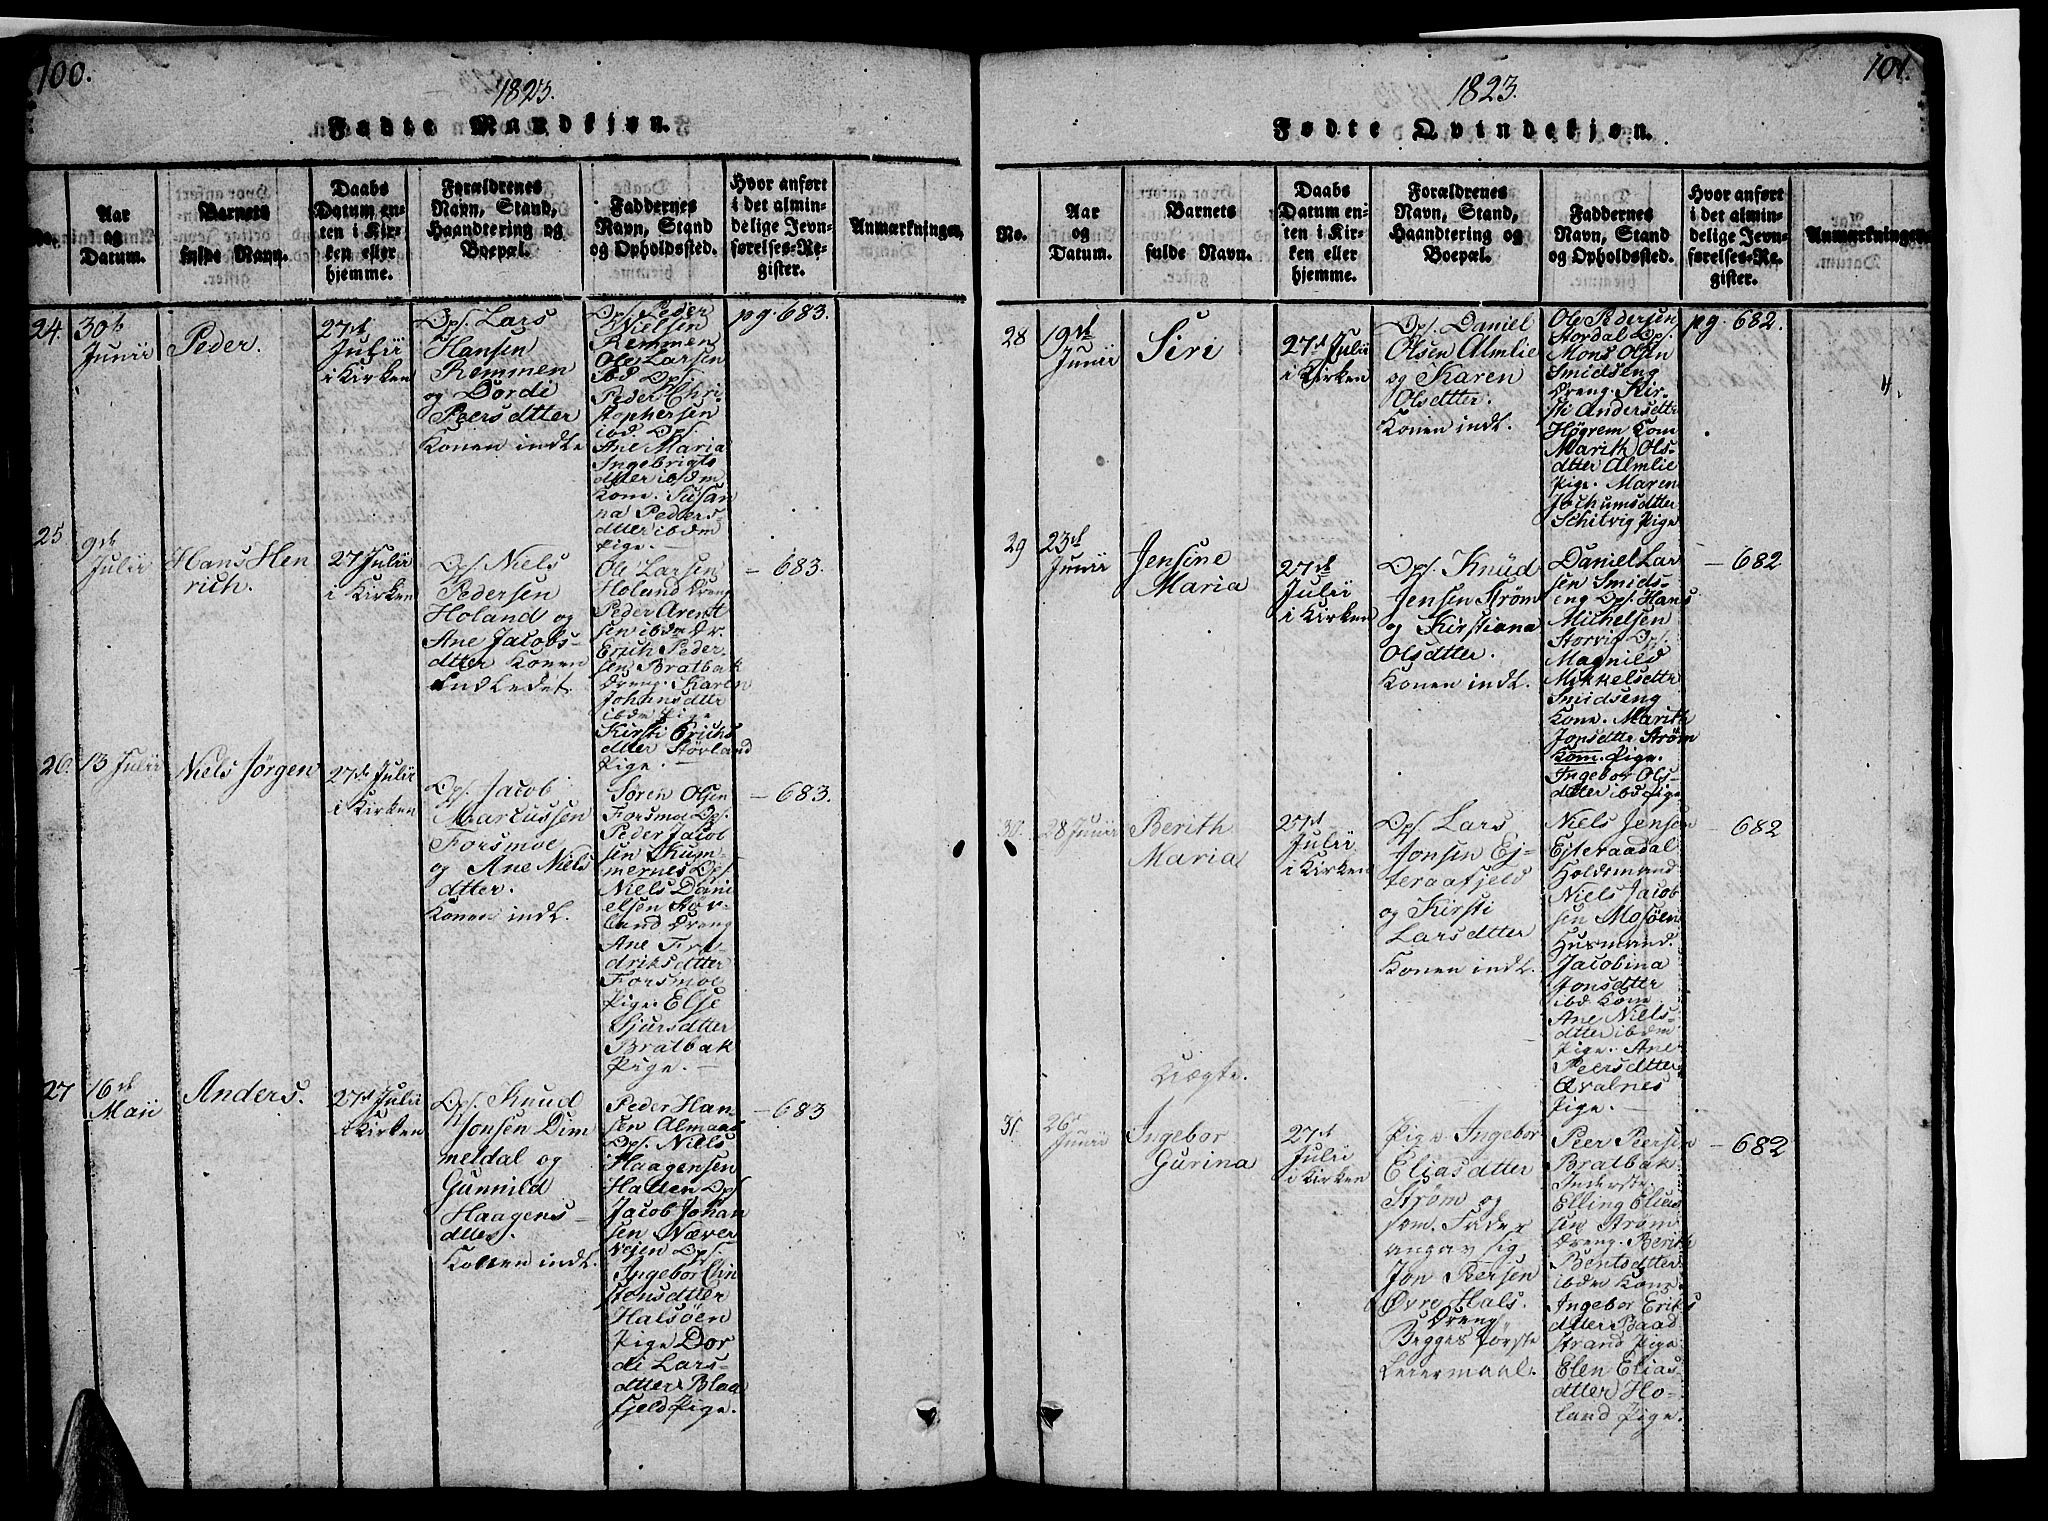 100.
1823.
Fødte Mandkjøn.
No.
Aar
og
Datum.
Barnets
fulde Navn.
Daabs
Datum en-
ten i Kir-
ken eller
hjemme.
Forældrenes
Navn, Stand,
Haandtering og
Boepæl.
Faddernes
Navn, Stand
og Opholdssted.
Hvor anført
i det almin-
delige Jevn-
førelses-Re-
gister.
Anmærkninger.
24.
30te
Junii
Peder.
27de
Julii
i Kirken
Ops. Lars
Hansen
Remmen
og Dordi
Peersdtter
Konen indl.
Ops. Peder
Nielsen
Remmen
Ole Larsen
ibd Ops.
Peder Chri
stophersen
ibd. Ops.
Ane Maria
Ingebrigts
dtter ibdm
Kone. Susan
na Peders-
dtter ibdm
Pige.
pg. 683.
25.
9de
Julii
Hans Hen
rich.
27 Julii
i Kirken
Ops. Niels
Pedersen
Holand og
Ane Jacobs-
dtter Konen
indledet.
Ole Larsen
Holand Dreng
Peder Arent
sen ibdm Dr.
Erich Peder
sen Bratbak
Dreng. Karen
Johnsdtter
ibdm Pige
Kirsti Erichs
dtter Størland
Pige.
- 683.
26.
13 Julii
Niels Jørgen
27de Julii
i Kirken
Ops. Jacob
Marcussen
Forsmoe
og Ane Niels
dtter.
Konen indl.
Søren Olsen
Forsmoe Ops.
Peder Jacob
sen Kum-
mernes Ops.
Niels Dani
elsen Stør-
land Dreng
Ane Fre-
driksdtter
Forsmoe
Pige. Else
Sjursdtter
Bratbak
Pige.
- 683.
27
16de
Maii
Anders.
27de Julii
i Kirken
Ops. Knud
Jonsen Dim
meldal og
Gunnild
Haagens-
dtter.
Konen indl.
Peder Han-
sen Almaas
Ops. Niels
Haagensen
Halten Ops
Jacob Johan
sen Næver
vejen Ops.
Ingebor Chri
stensdtter
Halsøen
Pige Dor
di Lars-
dtter Blaa
fjeld Pige.
- 683
101.
1823.
Fødte Qvindekjøn.
No.
Aar
og
Datum.
Barnets
fulde Navn.
Daabs
Datum en-
ten i Kir-
ken eller
hjemme.
Forældrenes
Navn, Stand,
Haandtering og
Boepæl.
Faddernes
Navn, Stand
og Opholdssted.
Hvor anført
i det almin-
delige Jevn-
førelses-Re-
gister.
Anmærkninger.
28
19de
Junii
Siri
27de Julii
i Kirken
Ops. Daniel
Olsen Almlie
og Karen
Olsdtter.
Konen indl.
Ole Pedersen
Stordal Ops.
Mons Olsen
Smidseng
Dreng. Kir-
sti Andersdtter
Högrem Kone
Marith Ols-
dtter Almlie
Pige. Maren
Jochumsdtter
Schitvig Pige
pg. 682.
29
23de
Junii
Jensine
Maria
27de
Julii
i Kirken
Ops. Knud
Jensen Strøm
og Kirstiana
Olsdtter.
Konen indl.
Daniel Lar
sen Smids-
eng Ops. Hans
Michelsen
Storvig Ops.
Magnild
Mikkelsdtter
Smidseng
Kone. Marith
Jonsdtter Strøm
Kone. Pige.
Ingebor Ols-
dtter ibd Pige
- 682
30.
28 Junii
Berith
Maria
27de
Julii
i Kirken
Ops. Lars
Jonsen Ej-
teraafjeld
og Kirsti
Larsdtter
Konen indl.
Niels Jensen
Ejteraadal
Holdsmand
Niels Jacob
sen Mosøen
Husmand.
Jacobina
Jonsdtter
ibd Kone
Ane Niels-
dtter ibdm
Pige. Ane
Peersdtter
Qvalnes
Pige.
- 682
Uægte.
31.
26
Junii
Ingebor
Gurina
27de
Julii
i Kirken
Pige Ingebor
Eliasdtter
Strøm og
som Fader
angav sig
Jon Peersen
Øvre Hals.
Dreng
Begges første
Leiermaal.
Peer Peersen
Bratbak
Inderste.
Elling Elias
sen Strøm
Dreng. Berith
Bentsdtter
ibdm Kone
Ingebor Eriks
dtter Baad
strand Pige
Elen Elias
dtter Ho-
land Pige.
- 682